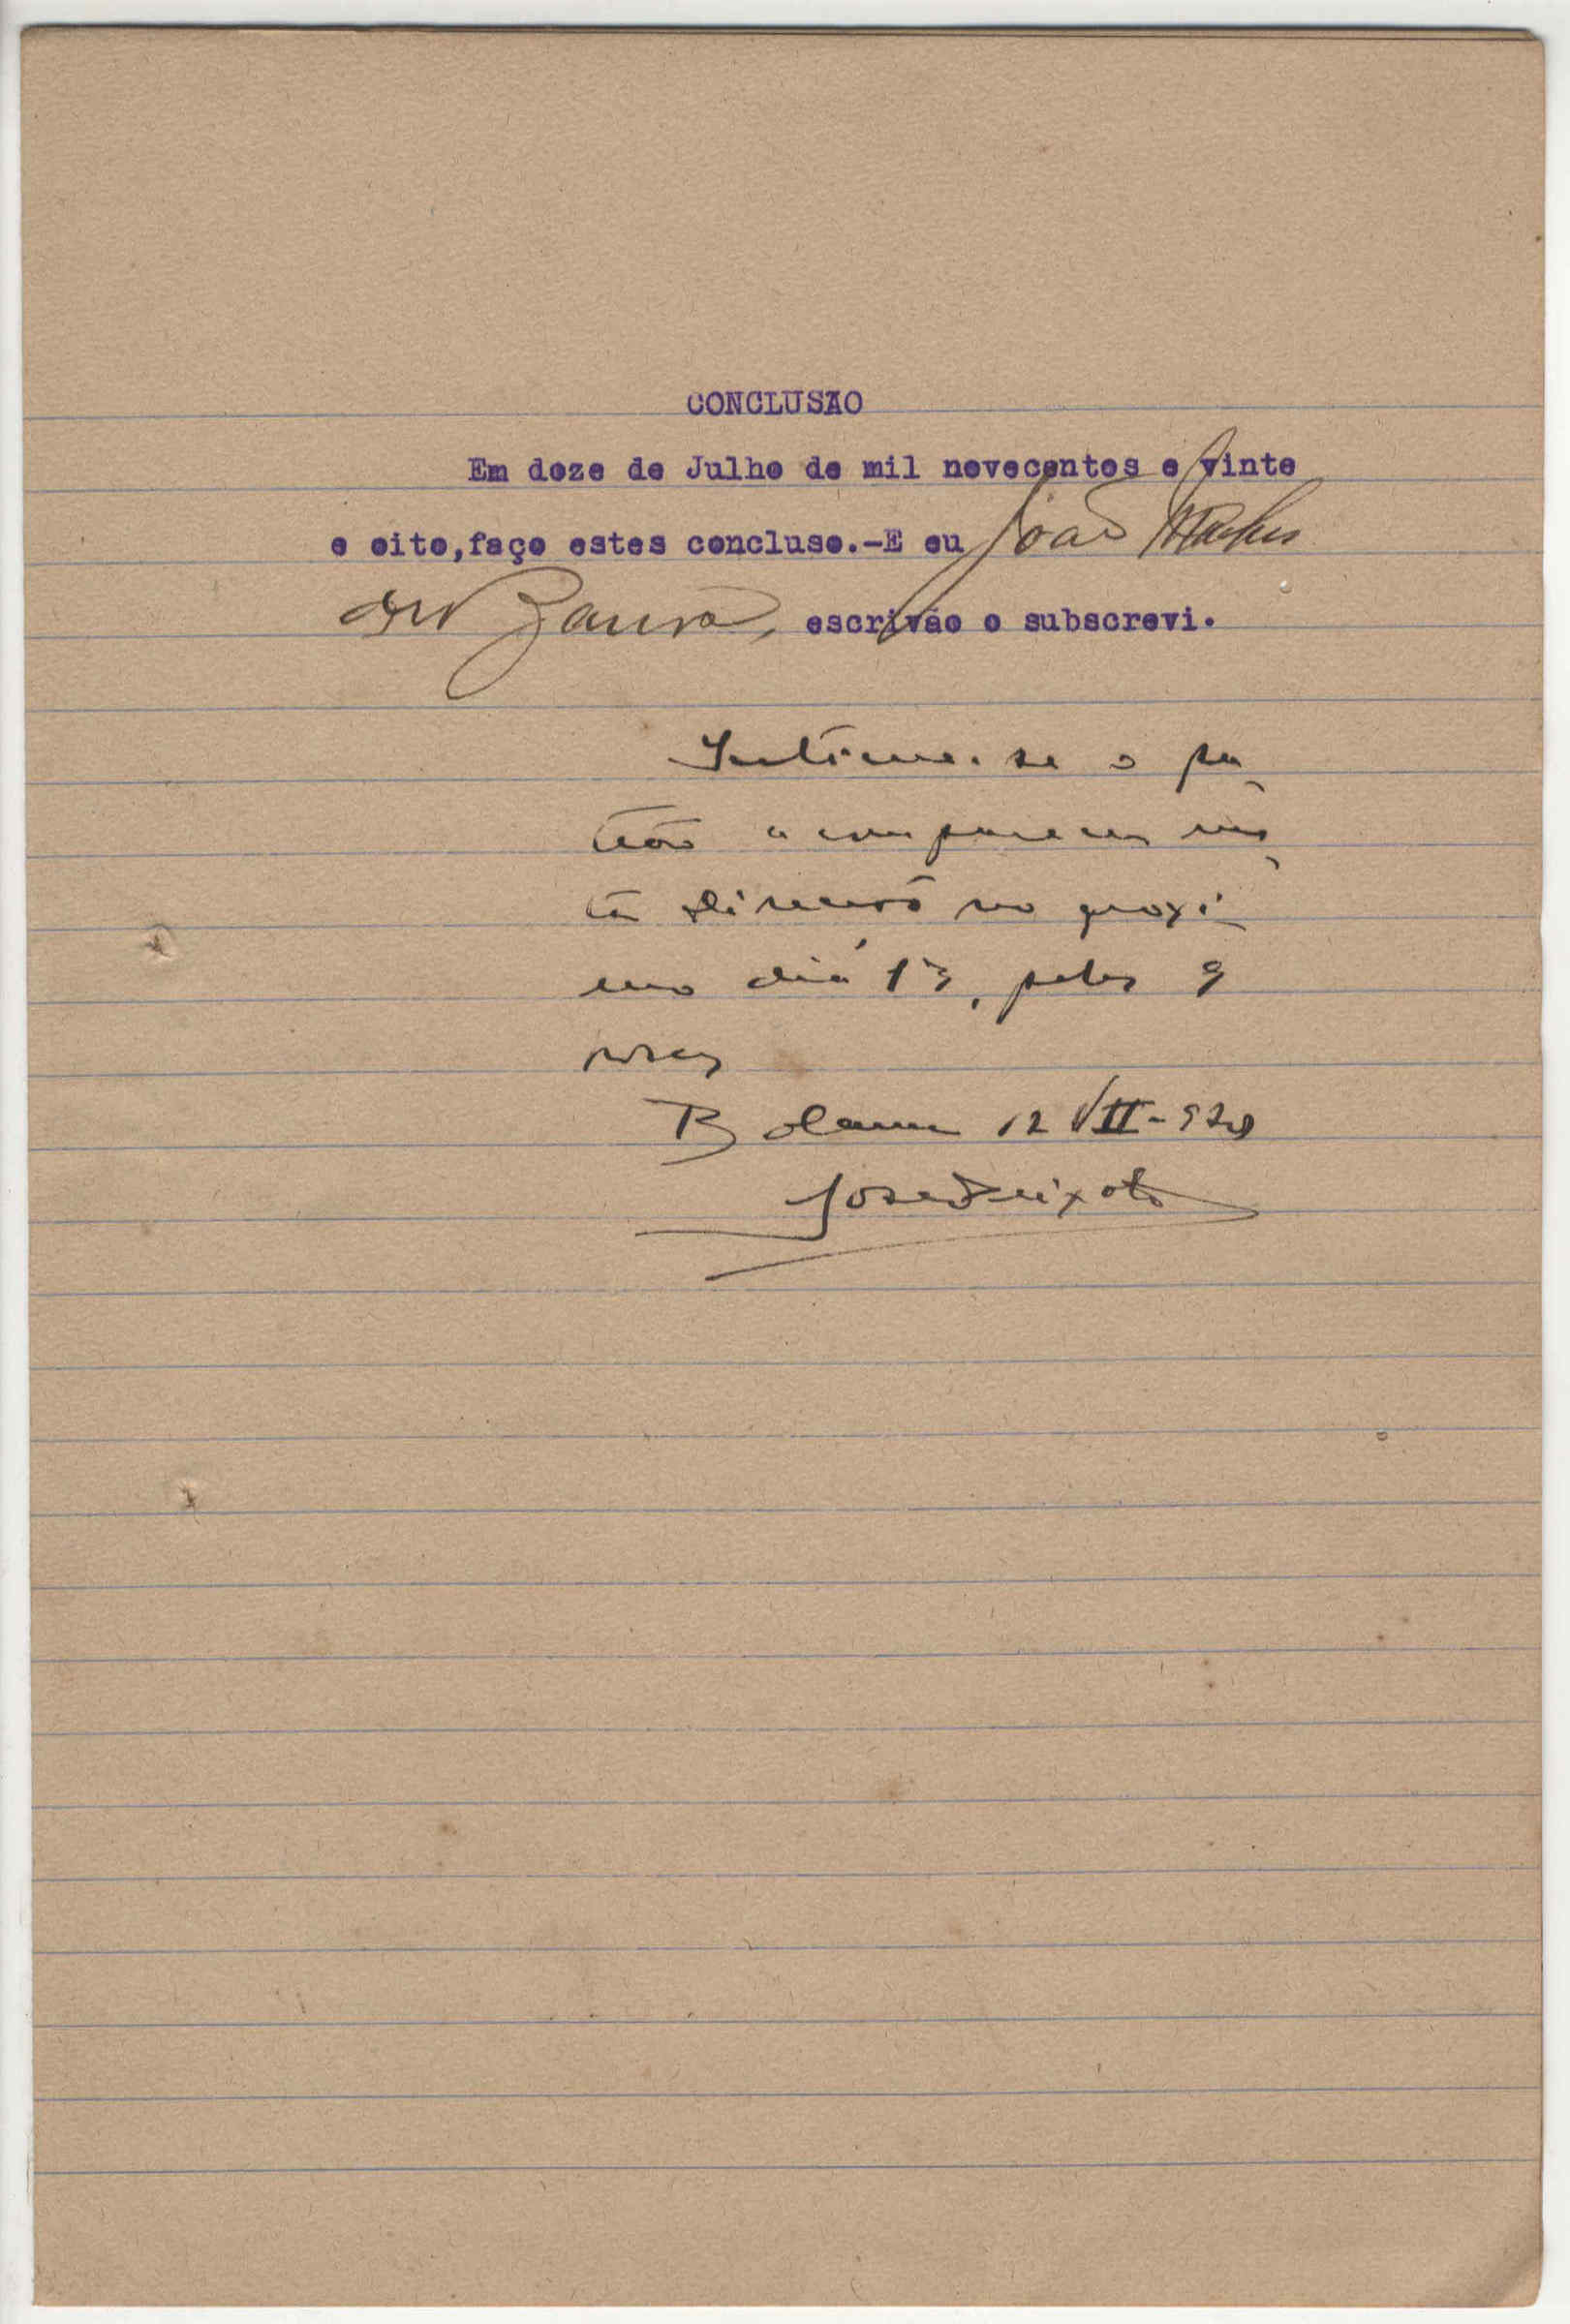 CONCLUSÃO
Em doze de Julho de mil novecentos e vinte
e oito,faço estes concluso.-E eu João
escrivão o subscrevi.
Intime-se o pa-
trão a comparecer nes-
ta Direcção no proxi-
mo dia 13, pelas 9
horas
Bolama 12 VII-928
José Peixoto